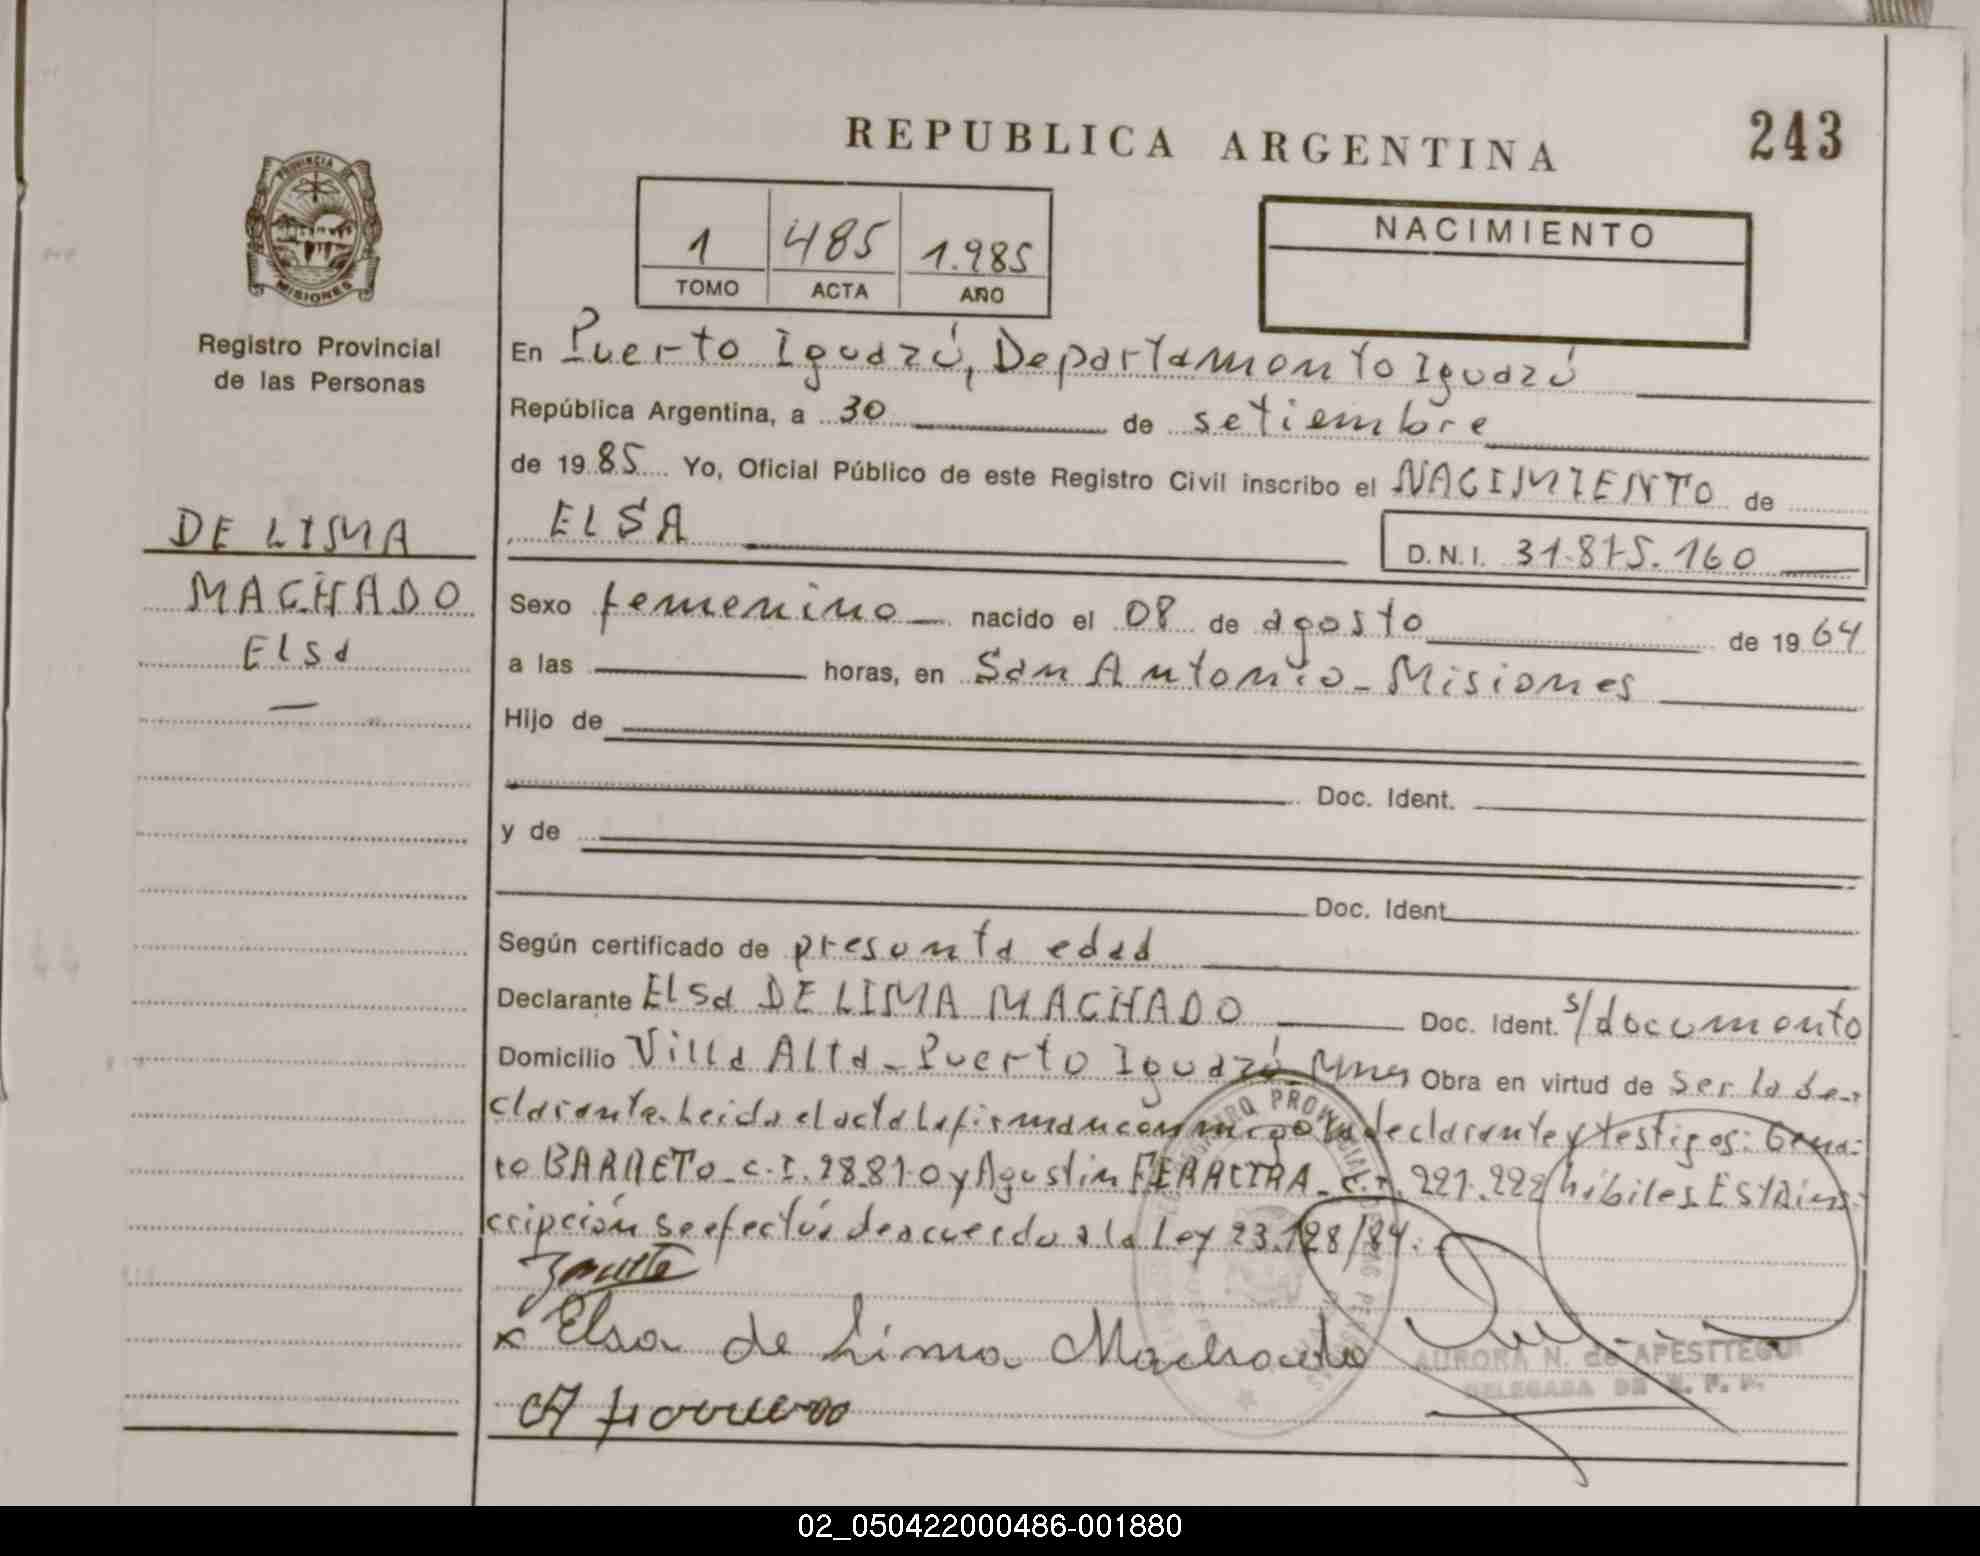 REPUBLICA ARGENTINA
243
PROVINCIA DE
MISIONES
Registro Provincial
de las Personas
1 485 1.985
TOMO ACTA AÑO
NACIMIENTO
En Puerto Iguazú, Departamento Iguazú
República Argentina, a 30 de setiembre
de 1985 Yo, Oficial Público de este Registro Civil inscribo el NACIMIENTO de
ELSA
D.N.I. 31.875.160
DE LIMA
MACHADO
Elsa
Sexo femenino nacido el 08 de agosto de 1964
a las horas, en San Antonio - Misiones
Hijo de
Doc. Ident.
y de
Doc. Ident.
Según certificado de presunta edad
Declarante Elsa DE LIMA MACHADO Doc. Ident. s/documento
Domicilio Villa Alta - Puerto Iguazú - Mnes Obra en virtud de ser la de-
clarante. Leida el acta la firman conmigo la declarante y testigos:
to BARRETO - C.I. 28.810 y Agustin FERREIRA - C.I. 221.222 hábiles ESTA ins-
cripción se efectúa de acuerdo a la Ley 23.128/84.
x Elsa de Lima Machado
AURORA N. de APESTTEGUI
DELEGADA DE R. P. P.
02_050422000486-001880